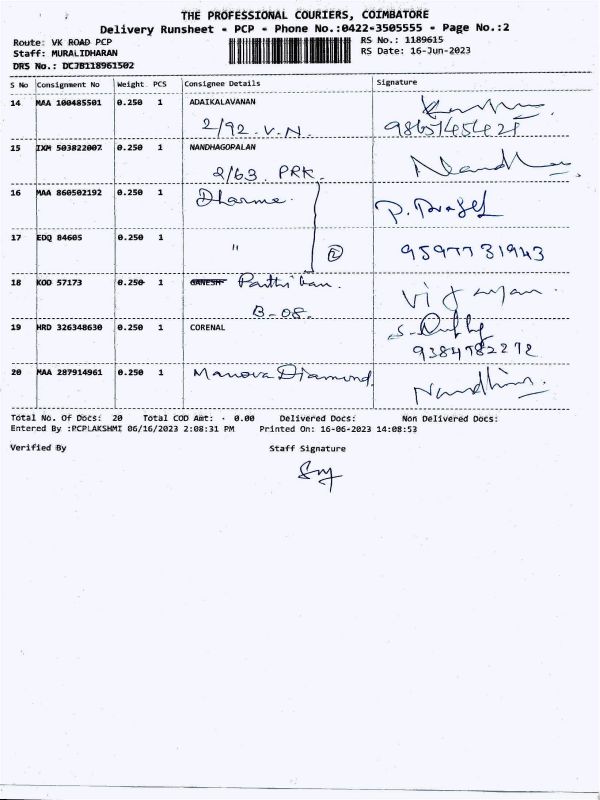 THE PROFESSIONAL COURIERS, COIMBATORE
Delivery Runsheet - PCP - Phone No.:0422-3505555 - Page No.:2
Route: VK ROAD PCP
RS No.: 1189615
Staff: MURALIDHARAN
RS Date: 16-Jun-2023
DRS No.: DCJB118961502
S No Consignment No Weight PCS Consignee Details Signature
14 MAA 100485501 0.250 1 ADAIKALAVANAN
2/92. V.N.
15 IXM 503822007 0.250 1 NANDHAGOPALAN
2/63. PRK.
16 MAA 860502192 0.250 1 Dharme.
17 EDQ 84605 0.250 1 " 2 9597731943
18 KOD 57173 0.250 1 GANESH Parthiban.
B-08.
19 HRD 326348630 0.250 1 CORENAL
9384782272
20 MAA 287914961 0.250 1 Manova Diamond.
Total No. Of Docs: 20 Total COD Amt: - 0.00 Delivered Docs: Non Delivered Docs:
Entered By :PCPLAKSHMI 06/16/2023 2:08:31 PM Printed On: 16-06-2023 14:08:53
Verified By Staff Signature